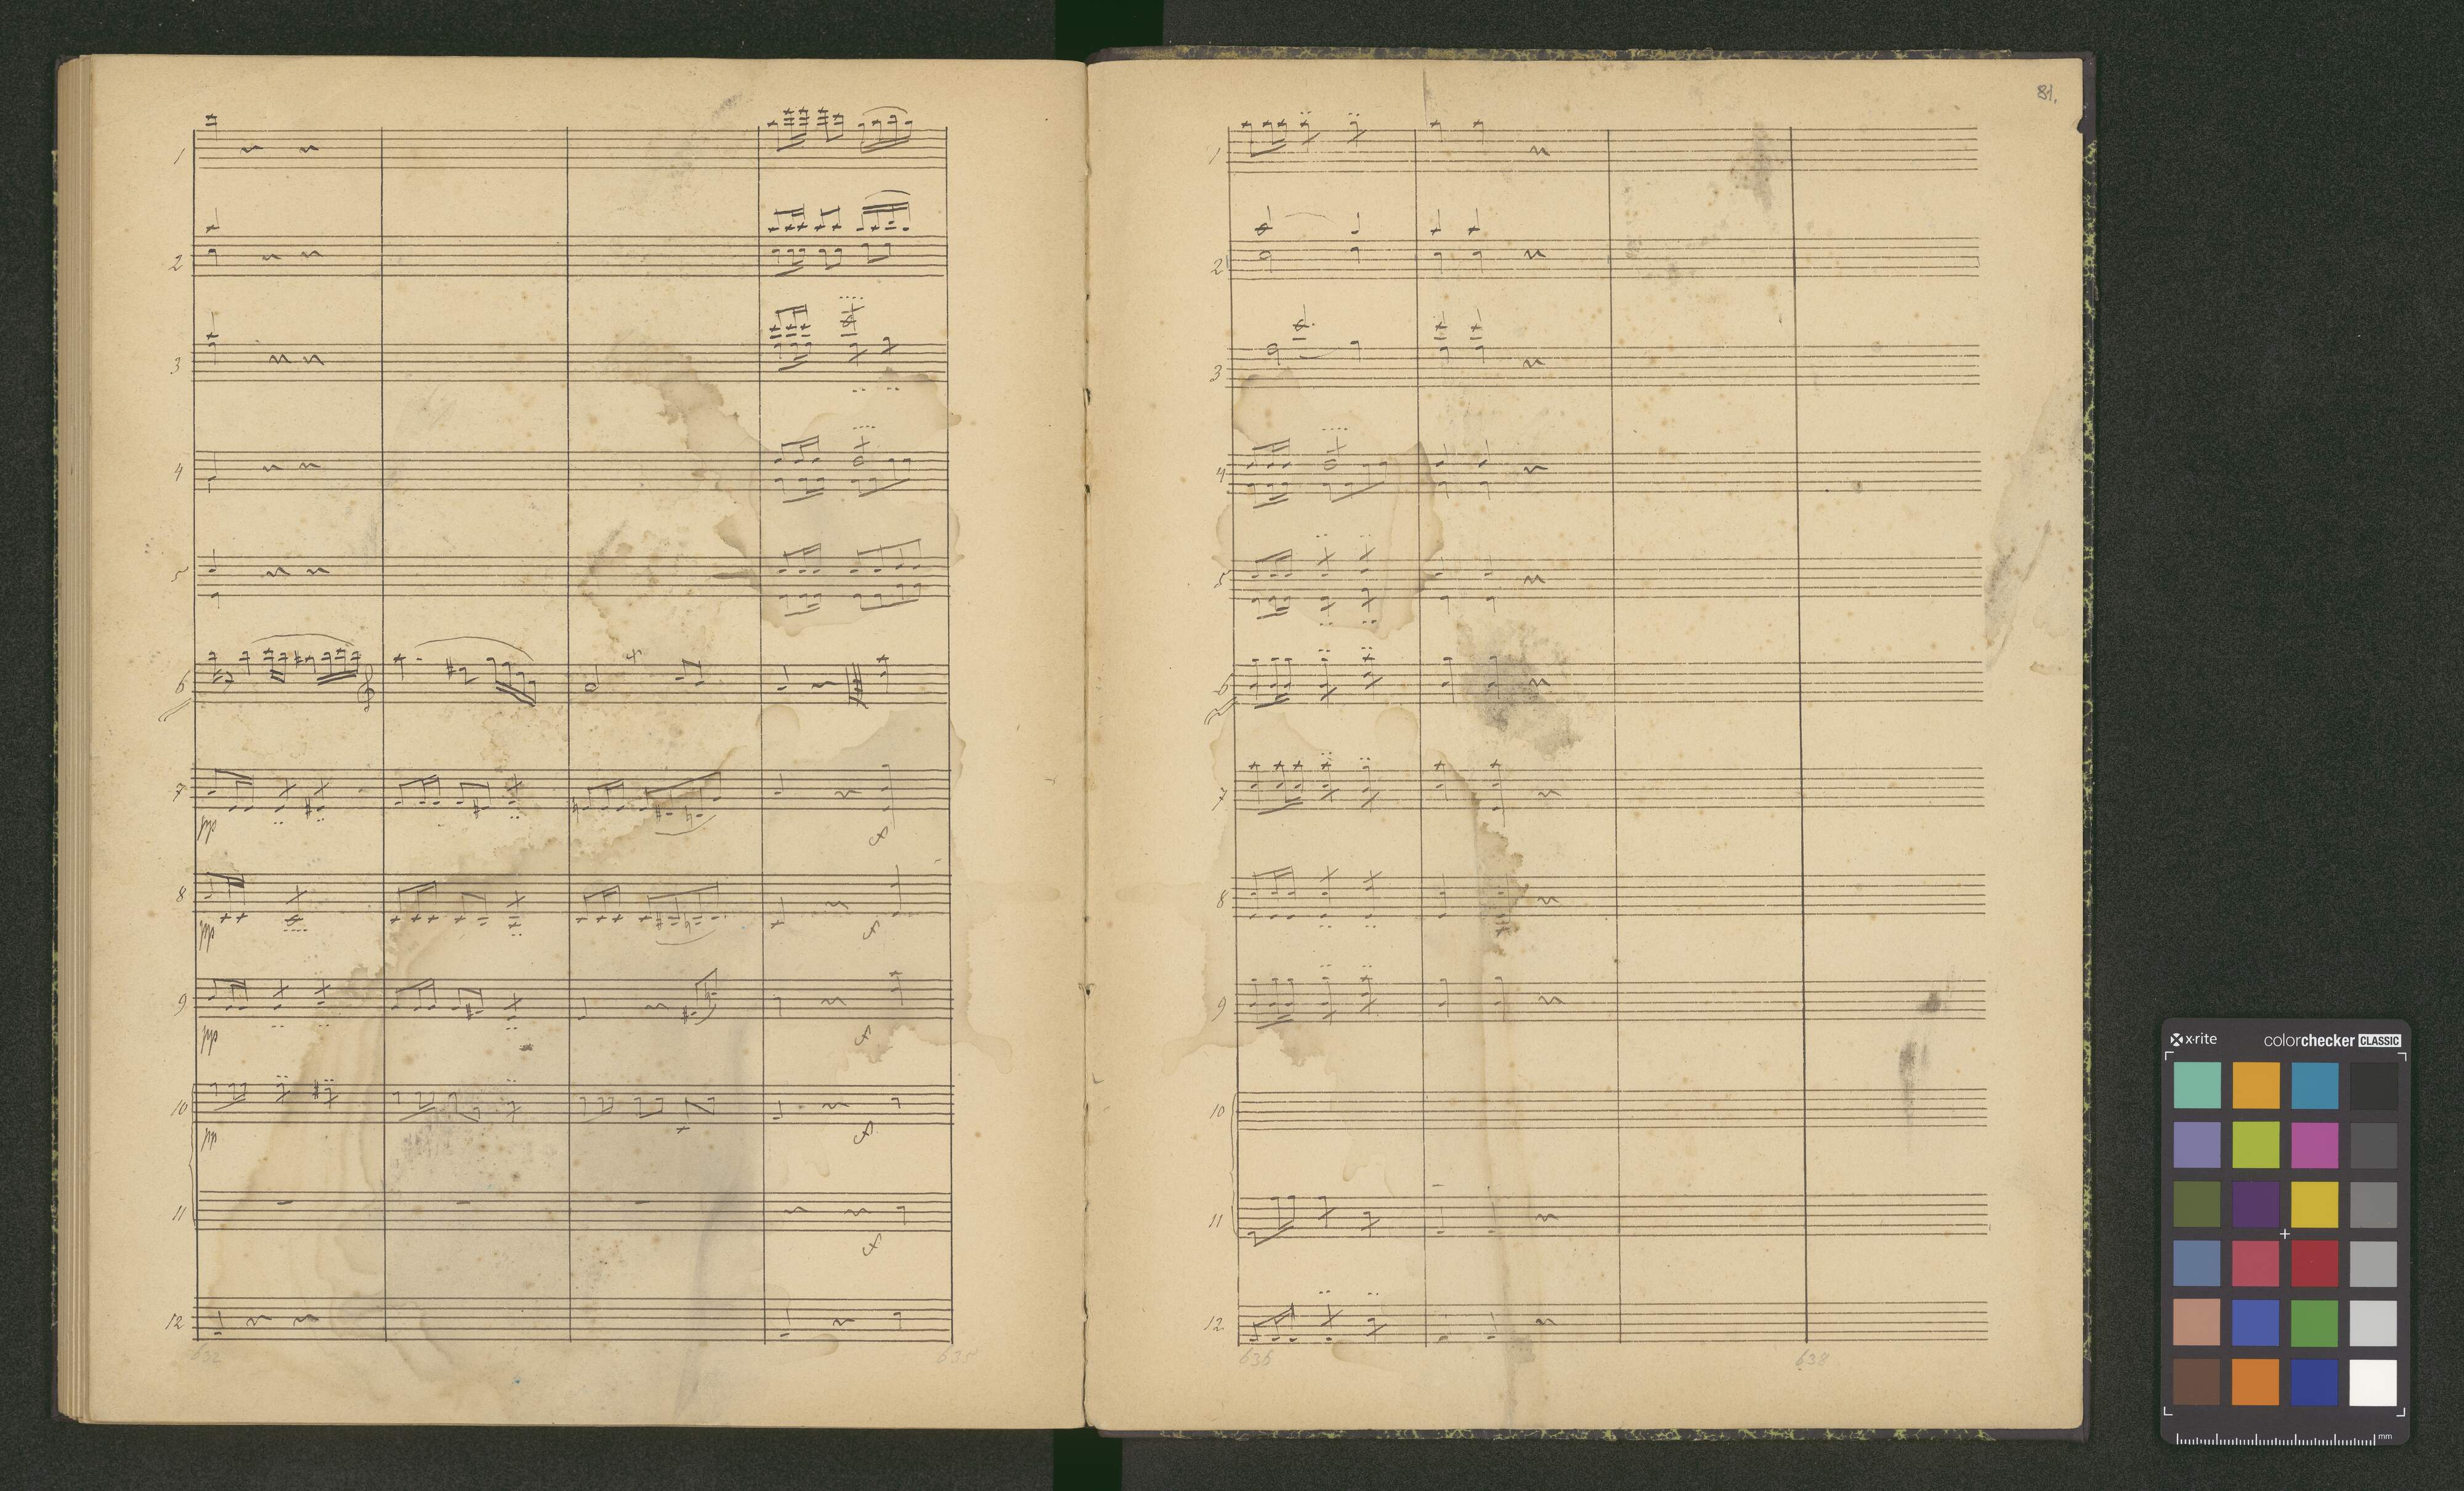 1
2
3
4
5
6
7
pp
f
8
pp
f
9
pp
f
10
pp
f
11
f
12
632 635
81.
1
2
3
4
5
6
7
8
9
10
11
12
636 638
x-rite colorchecker CLASSIC
mm